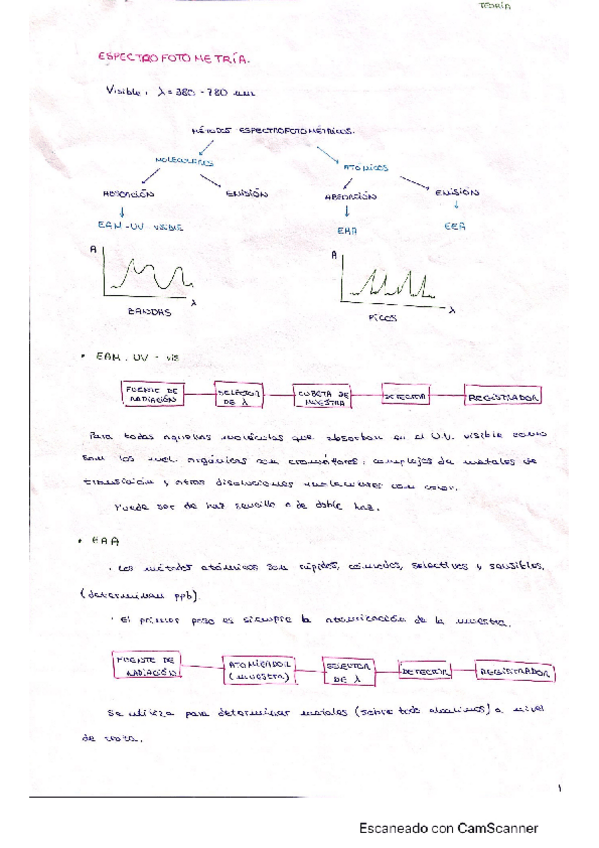 TEORÍA
ESPECTROFOTOMETRÍA.
Visible: λ = 380 - 780 nm
MÉTODOS ESPECTROFOTOMÉTRICOS.
MOLECULARES
ATÓMICOS
ABSORCIÓN
EMISIÓN
ABSORCIÓN
EMISIÓN
EAM-UV-VISIBLE
EAA
EEA
A
λ
BANDAS
A
λ
PICOS
• EAM. UV - vis
FUENTE DE RADIACIÓN
SELECTOR DE λ
CUBETA DE MUESTRA
DETECTOR
REGISTRADOR
Para todas aquellas moléculas que absorban en el U.V. visible como
son los mol. orgánicas con cromóforos; complejos de metales de
transición y otras disoluciones moleculares con color.
Puede ser de haz sencillo o de doble haz.
• EAA
· Los métodos atómicos son rápidos, cómodos, selectivos y sensibles,
(determinan ppb).
· El primer paso es siempre la atomización de la muestra.
FUENTE DE RADIACIÓN
ATOMIZADOR (MUESTRA)
SELECTOR DE λ
DETECTOR
REGISTRADOR
Se utiliza para determinar metales (sobre todo alcalinos) a nivel
de traza.
1
Escaneado con CamScanner